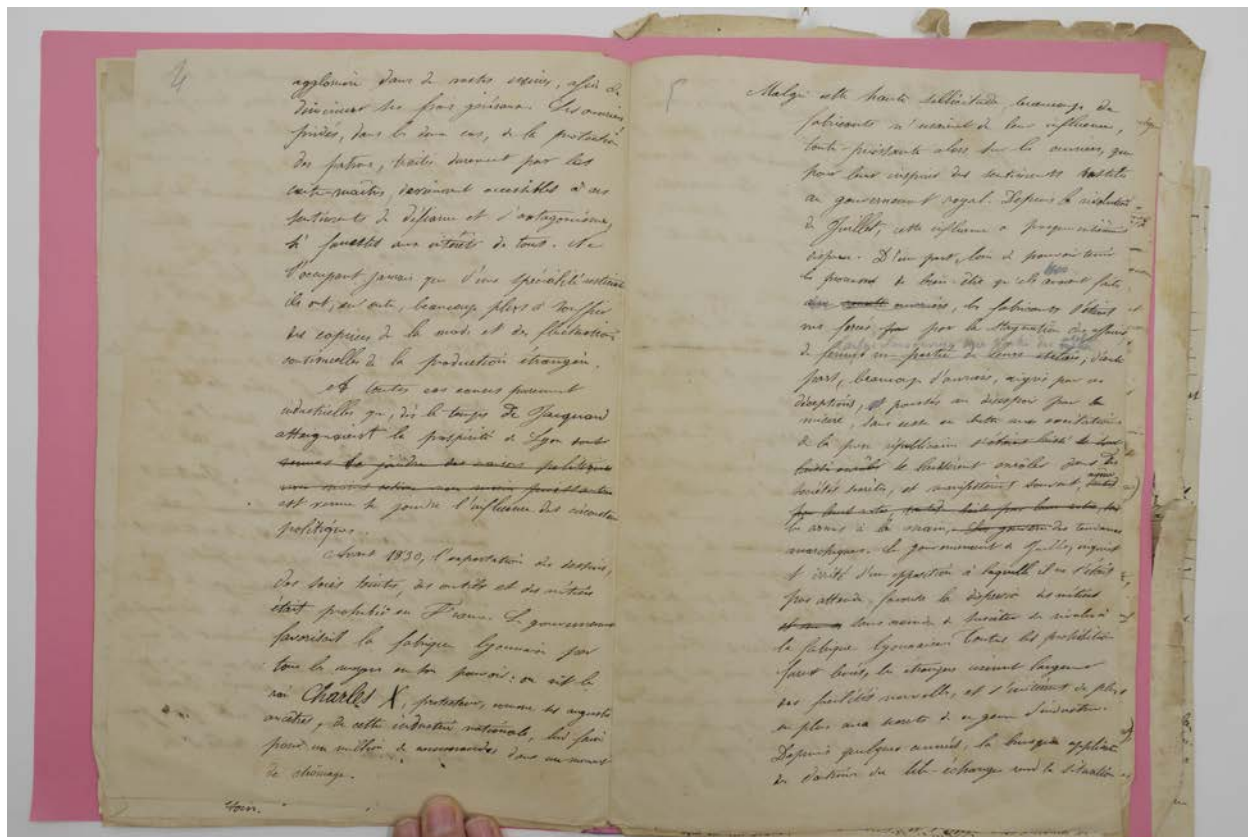 4
agglomérés dans de vastes usines, afin de
diminuer les frais généraux. Les ouvriers
privés, dans les deux cas, de la protection
des patrons, traités durement par les
contre-maîtres, devinrent accessibles à ces
sentiments de défiance et d'antagonisme,
si funestes aux intérêts de tous. Ne
s'occupant jamais que d'une spécialité restreinte
ils ont, en outre, beaucoup plus à souffrir
des caprices de la mode et des fluctuations
continuelles de la production étrangère.
A toutes ces causes purement
industrielles qui, dès le temps de Jacquard
atteignaient la prospérité de Lyon
est venue se joindre l'influence des circonstances
politiques.
Avant 1830, l'exportation des dessins,
des soies teintes, des outils et des métiers
était prohibée en France. Le gouvernement
favorisait la fabrique lyonnaise par
tous les moyens en son pouvoir : on vit le
roi Charles X, protecteur, comme ses augustes
ancêtres, de cette industrie nationale, lui faire
pour un million de commandes dans un moment
de chômage.
5
Malgré cette haute sollicitude, beaucoup de
fabricants n'usaient de leur influence,
toute-puissante alors sur les ouvriers, que
pour leur inspirer des sentiments hostiles
au gouvernement royal. Depuis la révolution
de Juillet, cette influence a presque entièrement
disparu. D'une part, loin de pouvoir tenir
les promesses de bien-être qu'ils avaient faites
ouvriers, les fabricants s'étaient
vus forcés par la stagnation des affaires
de fermer une partie de leurs ateliers; d'autre
part, beaucoup d'ouvriers, aigris par ces
déceptions, et poussés au désespoir par la
misère, sans cesse en butte aux excitations
de la presse républicaine
se laissèrent enrôler dans des
sociétés secrètes, et manifestèrent souvent, même
les armes à la main, des tendances
anarchiques. Le gouvernement de Juillet, inquiet
et irrité d'une opposition à laquelle il ne s'était
pas attendu, favorisa la dispersion des métiers
sans craindre de susciter des rivales à
la fabrique lyonnaise. Toutes les prohibitions
furent levées, les étrangers usèrent largement
des facilités nouvelles, et s'initièrent de plus
en plus aux secrets de ce genre d'industrie.
Depuis quelques années, la brusque application
des doctrines du libre-échange rend la situation